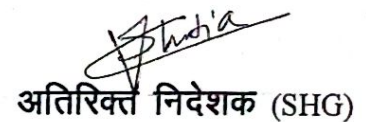 अतिरिक्त निदेशक (SHG)